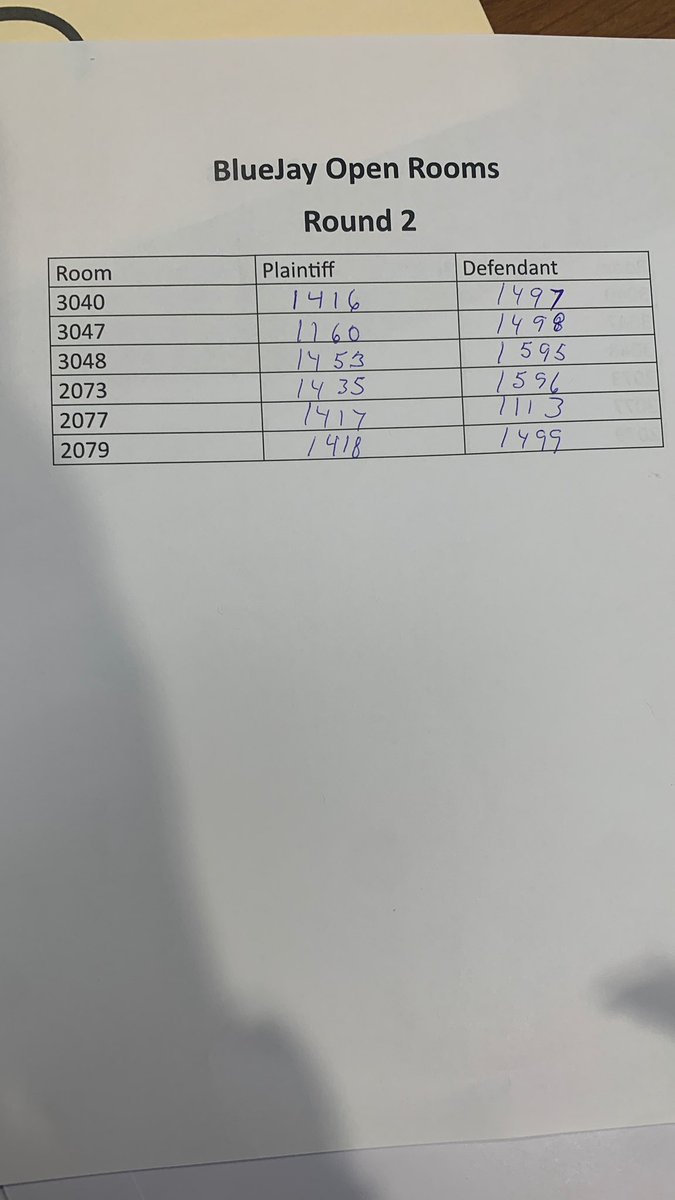 BlueJay Open Rooms
Round 2
Room Plaintiff Defendant
3040 1416 1497
3047 1160 1498
3048 1453 1595
2073 1435 1596
2077 1417 1113
2079 1418 1499